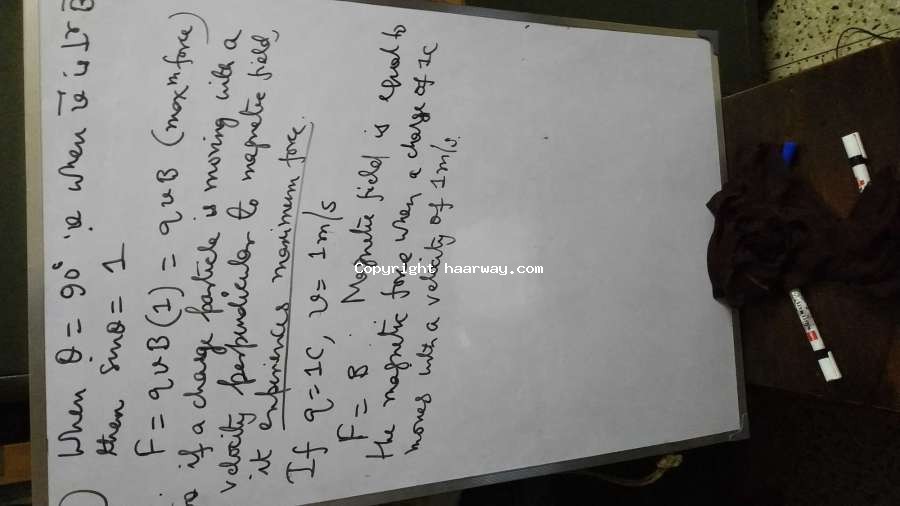 )
When θ = 90° ie when v is ⊥r B
then sinθ = 1
F = qvB(1) = qvB (max^m force)
ie if a charge particle is moving with a
velocity perpendicular to magnetic field,
it experiences maximum force.
If q = 1C, v = 1m/s
F = B. Magnetic field is equal to
the magnetic force when a charge of 1C
moves with a velocity of 1m/s.
Copyright haarway.com